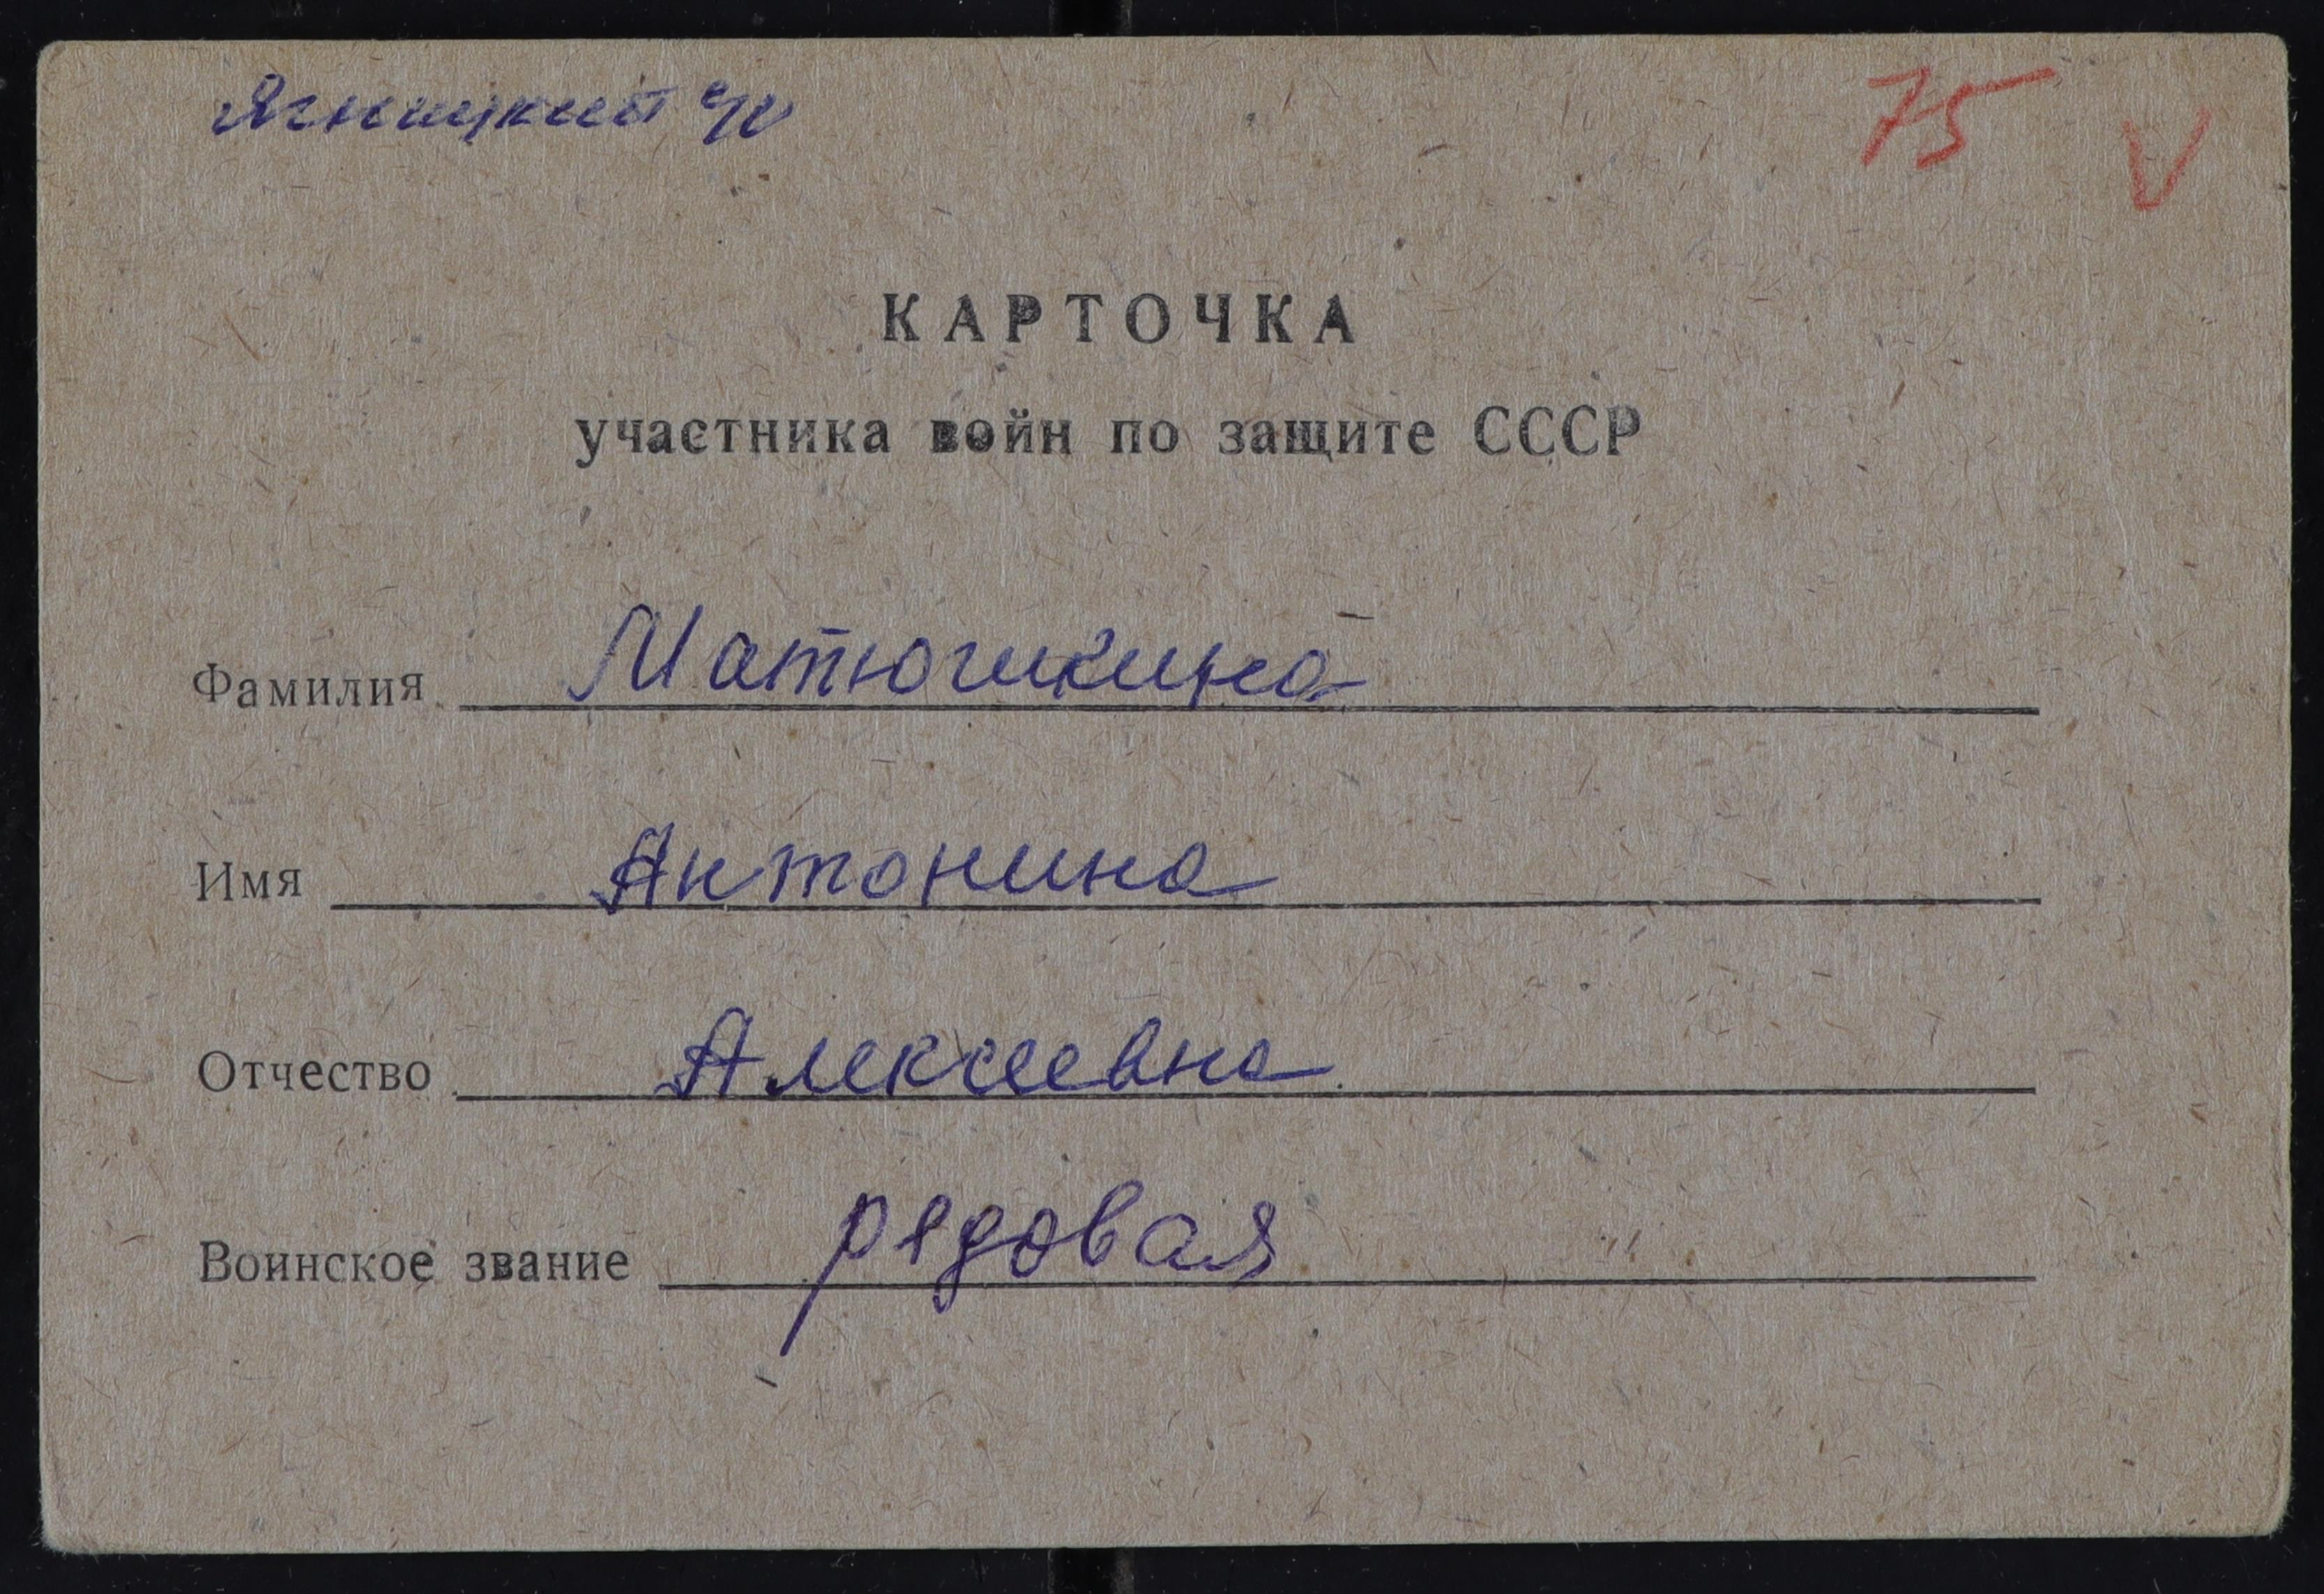 Ягницкий 40
75 V
КАРТОЧКА
участника войн по защите СССР
Фамилия Матюшкина
Имя Антонина
Отчество Алексеевна
Воинское звание рядовая